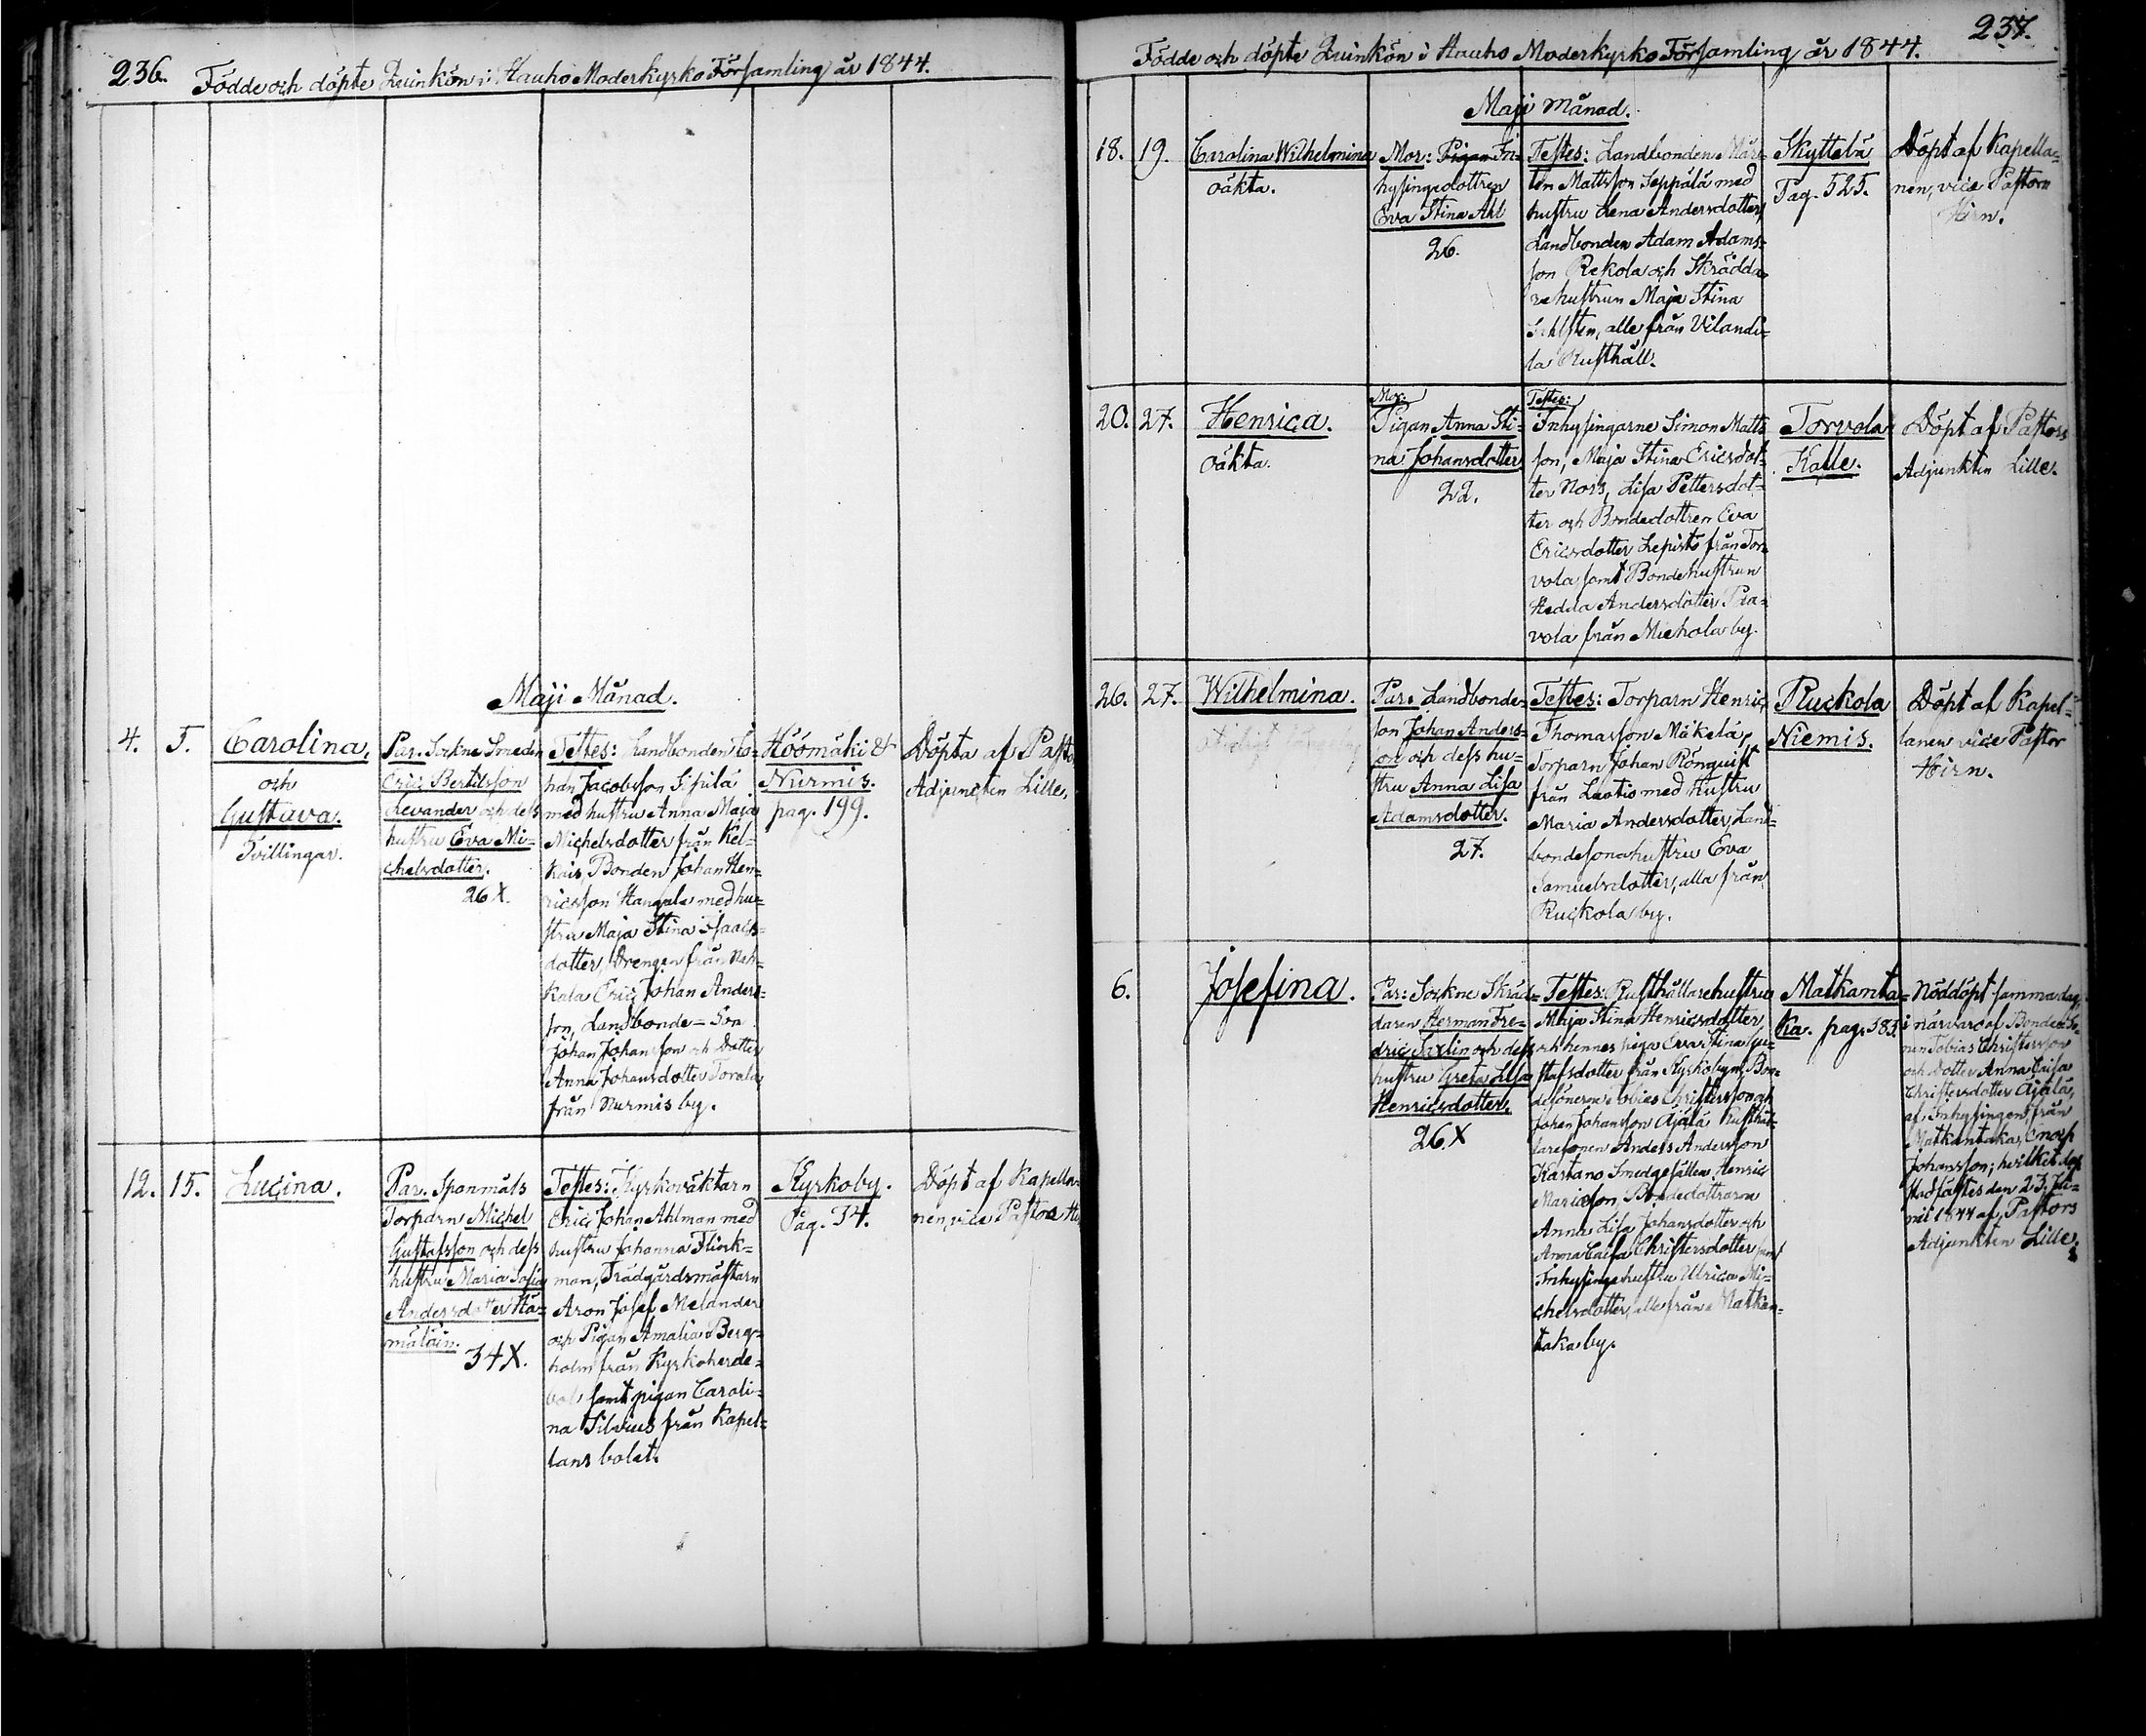 236. Födde och döpte Quinkön i Hauho Moderkyrko Församling år 1844.
Maji Månad.
4. 5. Carolina,
och
Gustava.
Tvillingar.
Par. Sockne Smeden
Eric Bertilsson
Levander och dess
hustru Eva Mi=
chelsdotter.
26 X.
Testes: Landbonden Jo=
han Jacobsson Sipilä
med hustru Anna Maja
Michelsdotter från Kel=
kais, Bonden Johan Hen=
ricsson Hangala med hu=
stru Maja Stina Isaacs=
dotter, Drengen från Nah=
kala Eric Johan Anders=
son, Landbonde=Son
Johan Johansson och Dotter
Anna Johansdotter Torala
från Nurmis by.
Höömäki &
Nurmis.
pag. 199.
Döpta af Pasto
Adjuncten Lille.
12. 15. Lucina.
Par. Sponmäls
Torparn Michel
Gustafsson och dess
hustru Maria Sofia
Andersdotter Hä=
mäläin.
34 X.
Testes: Kyrkoväktarn
Eric Johan Ahlman med
hustru Johanna Flinck=
man, Trädgårdsmästarn
Aron Josef Melander
och Pigan Amalia Berg=
holm från Kyrkoherde=
bol samt pigan Caroli=
na Silvius från Kapel=
lans bolet.
Kyrkoby.
Pag. 34.
Döpt af Kapella=
nen, vice Pastor Hi
237.
Födde och döpte Quinkön i Hauho Moderkyrko Församling år 1844.
Maji Månad.
18. 19. Carolina Wilhelmina
oäkta.
Mor: Pigan In=
hysingedottren
Eva Stina Ahl
26.
Testes: Landbonden Mår=
ten Mattsson Seppälä med
hustru Lena Andersdotter,
Landbonden Adam Adams=
son Rekola och Skrädda=
rehustrun Maja Stina
alle från Vilandi=
la Rusthåll.
Skyttelä
Pag. 525.
Döpt af Kapella=
nen, vice Pastorn
Hirn.
20. 27. Henrica.
oäkta.
Mor:
Pigan Anna Sti=
na Johansdotter
22.
Testes:
Inhysingarne Simon Matts=
son, Maja Stina Ericsdot=
ter Nors, Lisa Pettersdot=
ter och Bondedottren Eva
Ericsdotter Lepistö från Tor=
vola samt Bondehustrun
Hedda Andersdotter Pra=
vola från Miehola by.
Torvola
Kalle.
Döpt af Pastors
Adjunkten Lille.
26. 27. Wilhelmina.
Par: Landbonde=
son Johan Anders=
son och dess hu=
stru Anna Lisa
Adamsdotter.
27.
Testes: Torparn Henric
Thomasson Mäkelä,
Torparn Johan Rönquist
från Luotio med Hustru
Maria Andersdotter, Land=
bondesonahustru Eva
Samuelsdotter, alla från
Ruckola by.
Ruckola
Niemis.
Döpt af Kapel=
lanen vice Pastor
Hirn.
6. Josefina.
Par: Sockne Skräd=
daren Herman Fre=
dric Saxlin och dess
hustru Greta Lisa
Henricsdotter.
26. X
Testes: Rusthållarehustru
Maja Stina Henricsdotter,
och hennes piga Eva Stina Gu=
stafsdotter från Kyrkobyn, Bon=
desönerne Tobias Christersson och
Johan Johansson Äjälä Rusthål=
laresonen Anders Andersson
Kartano Smedgesällen Henric
Maricsson, Bondedöttrarne
Anna Lisa Johansdotter och
Anna Caisa Christersdotter samt
Inhysingehustru Ulrica Mi=
chelsdotter, alle från Matkan=
taka by.
Matkanta=
ka. pag. 383.
Nöddöpt samma dag,
i närvaro af Bonden So=
nen Tobias Christersson
och Dotter Anna Caisa
Christersdotter Äjälä,
af Inhysingen från
Matkantaka, Enoch
Johansson; hvilket dop
stadfästes den 23. Ju=
nii 1844 af Pastors
Adjunkten Lille.